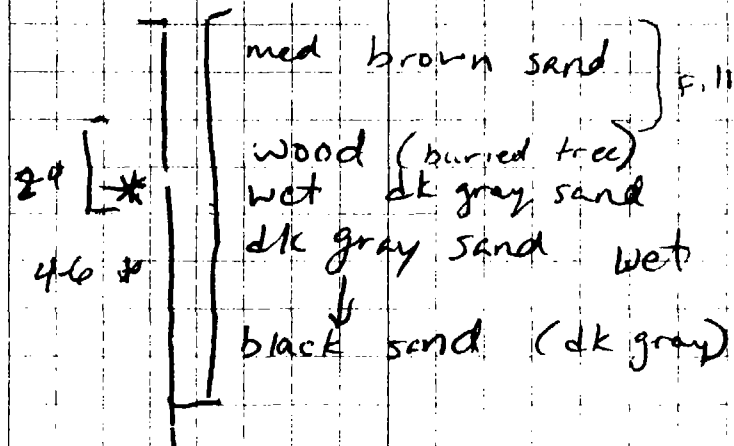 med brown sand
Fill
wood (buried tree)
wet dk gray sand
dk gray sand wet
black sand (dk gray)